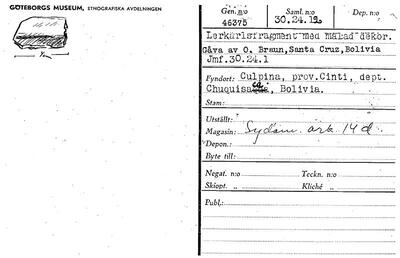 GÖTEBORGS MUSEUM, ETNOGRAFISKA AVDELNINGEN
Gen. n:o Saml. n:o Dep. n:o
46375 30.24.12
Lerkärlsfragment med målad dekor.
Gåva av O. Braun, Santa Cruz, Bolivia
Jmf. 30.24.1
Fyndort: Culpina, prov. Cinti, dept.
Chuquisaca, Bolivia.
Stam:
Utställt:
Magasin: Sydam. ark. 14 d.
Depon.:
Byte till:
Negat. n:o Teckn. n:o
Skiopt. „ Kliché „
Publ.: